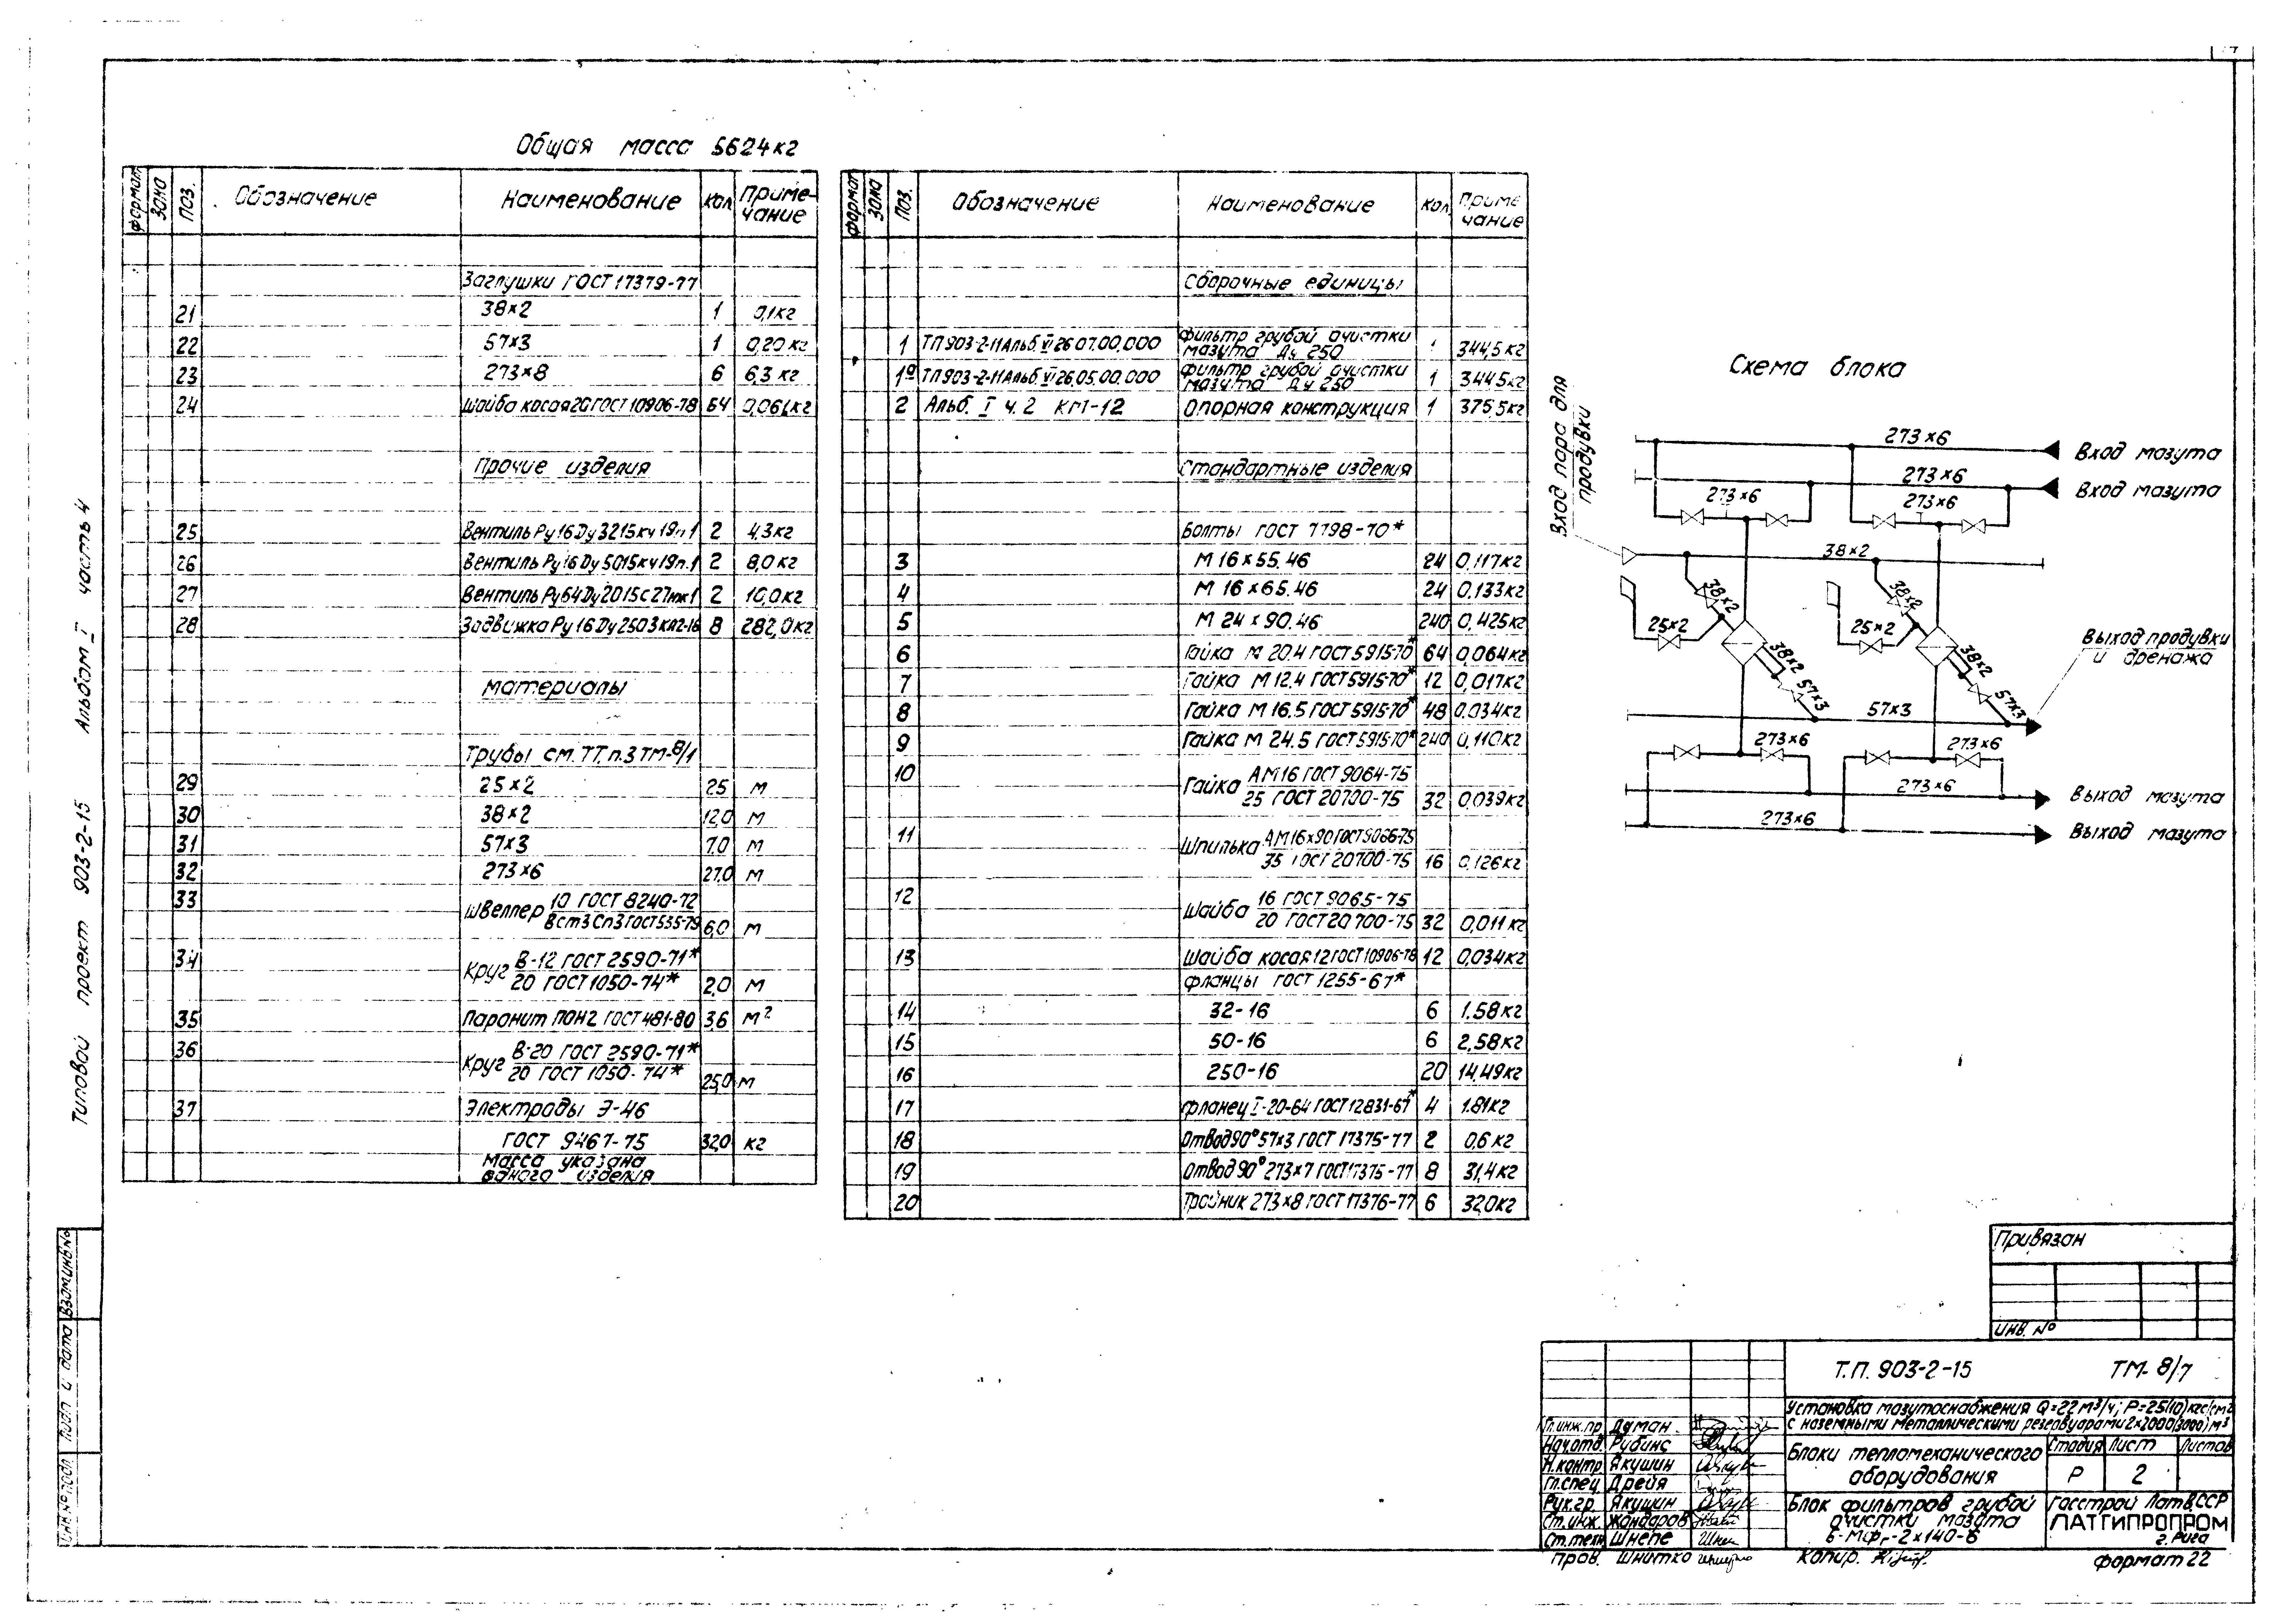 Общая масса 5624кг
формат зона поз. Обозначение Наименование кол Приме-
чание
Заглушки ГОСТ 17379-77
21 38×2 1 0,1кг
22 57×3 1 0,20 кг
23 273×8 6 6,3 кг
24 Шайба косая 20 ГОСТ 10906-78 64 0,061кг
Прочие изделия
25 Вентиль Ру16 Dу 32 15кч 19п 1 2 4,3кг
26 Вентиль Ру16 Dу 50 15кч 19п.1 2 8,0кг
27 Вентиль Ру64 Dу 20 15с 27нж1 2 10,0кг
28 Задвижка Ру 16 Dу 250 3кл2-16 8 282,0кг
Материалы
Трубы см. ТТ. п.3 ТМ-8/1
29 25×2 25 м
30 38×2 12,0 м
31 57×3 7.0 м
32 273×6 27,0 м
33 Швеллер 10 ГОСТ 8240-72
Вст3Сп3 ГОСТ535-79 6,0 м
34 Круг В-12 ГОСТ 2590-71*
20 ГОСТ 1050-74* 2,0 м
35 Паронит ПОН2 ГОСТ 481-80 3,6 м²
36 Круг В-20 ГОСТ 2590-71*
20 ГОСТ 1050-74* 25,0 м
37 Электроды Э-46
ГОСТ 9467-75 32,0 кг
Масса указана
одного изделия
формат зона поз. Обозначение Наименование кол. Приме
чание
Сборочные единицы
1 ТП903-2-11Альб. VI 26.07.00.000 Фильтр грубой очистки
мазута Ду 250 1 344,5кг
1а ТП903-2-11Альб. VI 26.05.00.000 Фильтр грубой очистки
мазута Ду 250 1 344,5кг
2 Альб. I ч. 2 КМ1-12 Опорная конструкция 1 375,5кг
Стандартные изделия
Болты ГОСТ 7798-70*
3 М 16×55.46 24 0,117кг
4 М 16×65.46 24 0,133кг
5 М 24×90.46 240 0,425кг
6 Гайка М 20.4 ГОСТ 5915-70* 64 0,064кг
7 Гайка М 12.4 ГОСТ 5915-70* 12 0,017кг
8 Гайка М 16.5 ГОСТ 5915-70* 48 0.034кг
9 Гайка М 24.5 ГОСТ 5915-70* 240 0,110кг
10 Гайка АМ16 ГОСТ 9064-75
25 ГОСТ 20700-75 32 0,039кг
11 Шпилька АМ16×90 ГОСТ 9066-75
35 ГОСТ 20700-75 16 0,126кг
12 Шайба 16 ГОСТ 9065-75
20 ГОСТ 20700-75 32 0,011кг
13 Шайба косая 12 ГОСТ 10906-78 12 0,034кг
Фланцы ГОСТ 1255-67*
14 32-16 6 1.58кг
15 50-16 6 2,58кг
16 250-16 20 14,49кг
17 Фланец I-20-64 ГОСТ 12831-67* 4 1.81кг
18 Отвод 90° 57×3 ГОСТ 17375-77 2 0,6кг
19 Отвод 90° 273×7 ГОСТ 17375-77 8 31,4кг
20 Тройник 273×8 ГОСТ 17376-77 6 32,0кг
Схема блока
Вход пара для
продувки
273×6
Вход мазута
273×6
Вход мазута
273×6
273×6
38×2
38×2
38×2
25×2
25×2
38×2
38×2
57×3
57×3
57×3
Выход продувки
и дренажа
273×6
273×6
273×6
Выход мазута
273×6
Выход мазута
Типовой проект 903-2-15 Альбом I часть 4
Инв.№подл. Подп. и дата Взам.инв.№
Привязан
Инв. №
Т.П. 903-2-15 ТМ-8/7
Установка мазутоснабжения Q=22м³/ч; Р=25(10)кгс/см²
с наземными металлическими резервуарами 2×2000(3000)м³
Гл.инж.пр Думан
Нач.отд. Рубинс
Н.контр Якушин
Гл.спец. Дрейя
Рук.гр. Якушин
Ст.инж. Жандаров
Ст.техн Шнепе
Пров. Шнитко
Блоки тепломеханического
оборудования
Стадия Лист Листов
Р 2
Блок фильтров грубой
очистки мазута
Б-Мфг-2×140-6
Госстрой Латв.ССР
ЛАТГИПРОПРОМ
г. Рига
Копир.
Формат 22